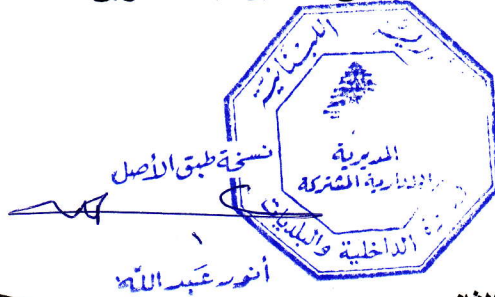 اللبنانية
المديرية
الإدارية المشتركة
الداخلية والبلديات
نسخة طبق الأصل
أنور عبد الله